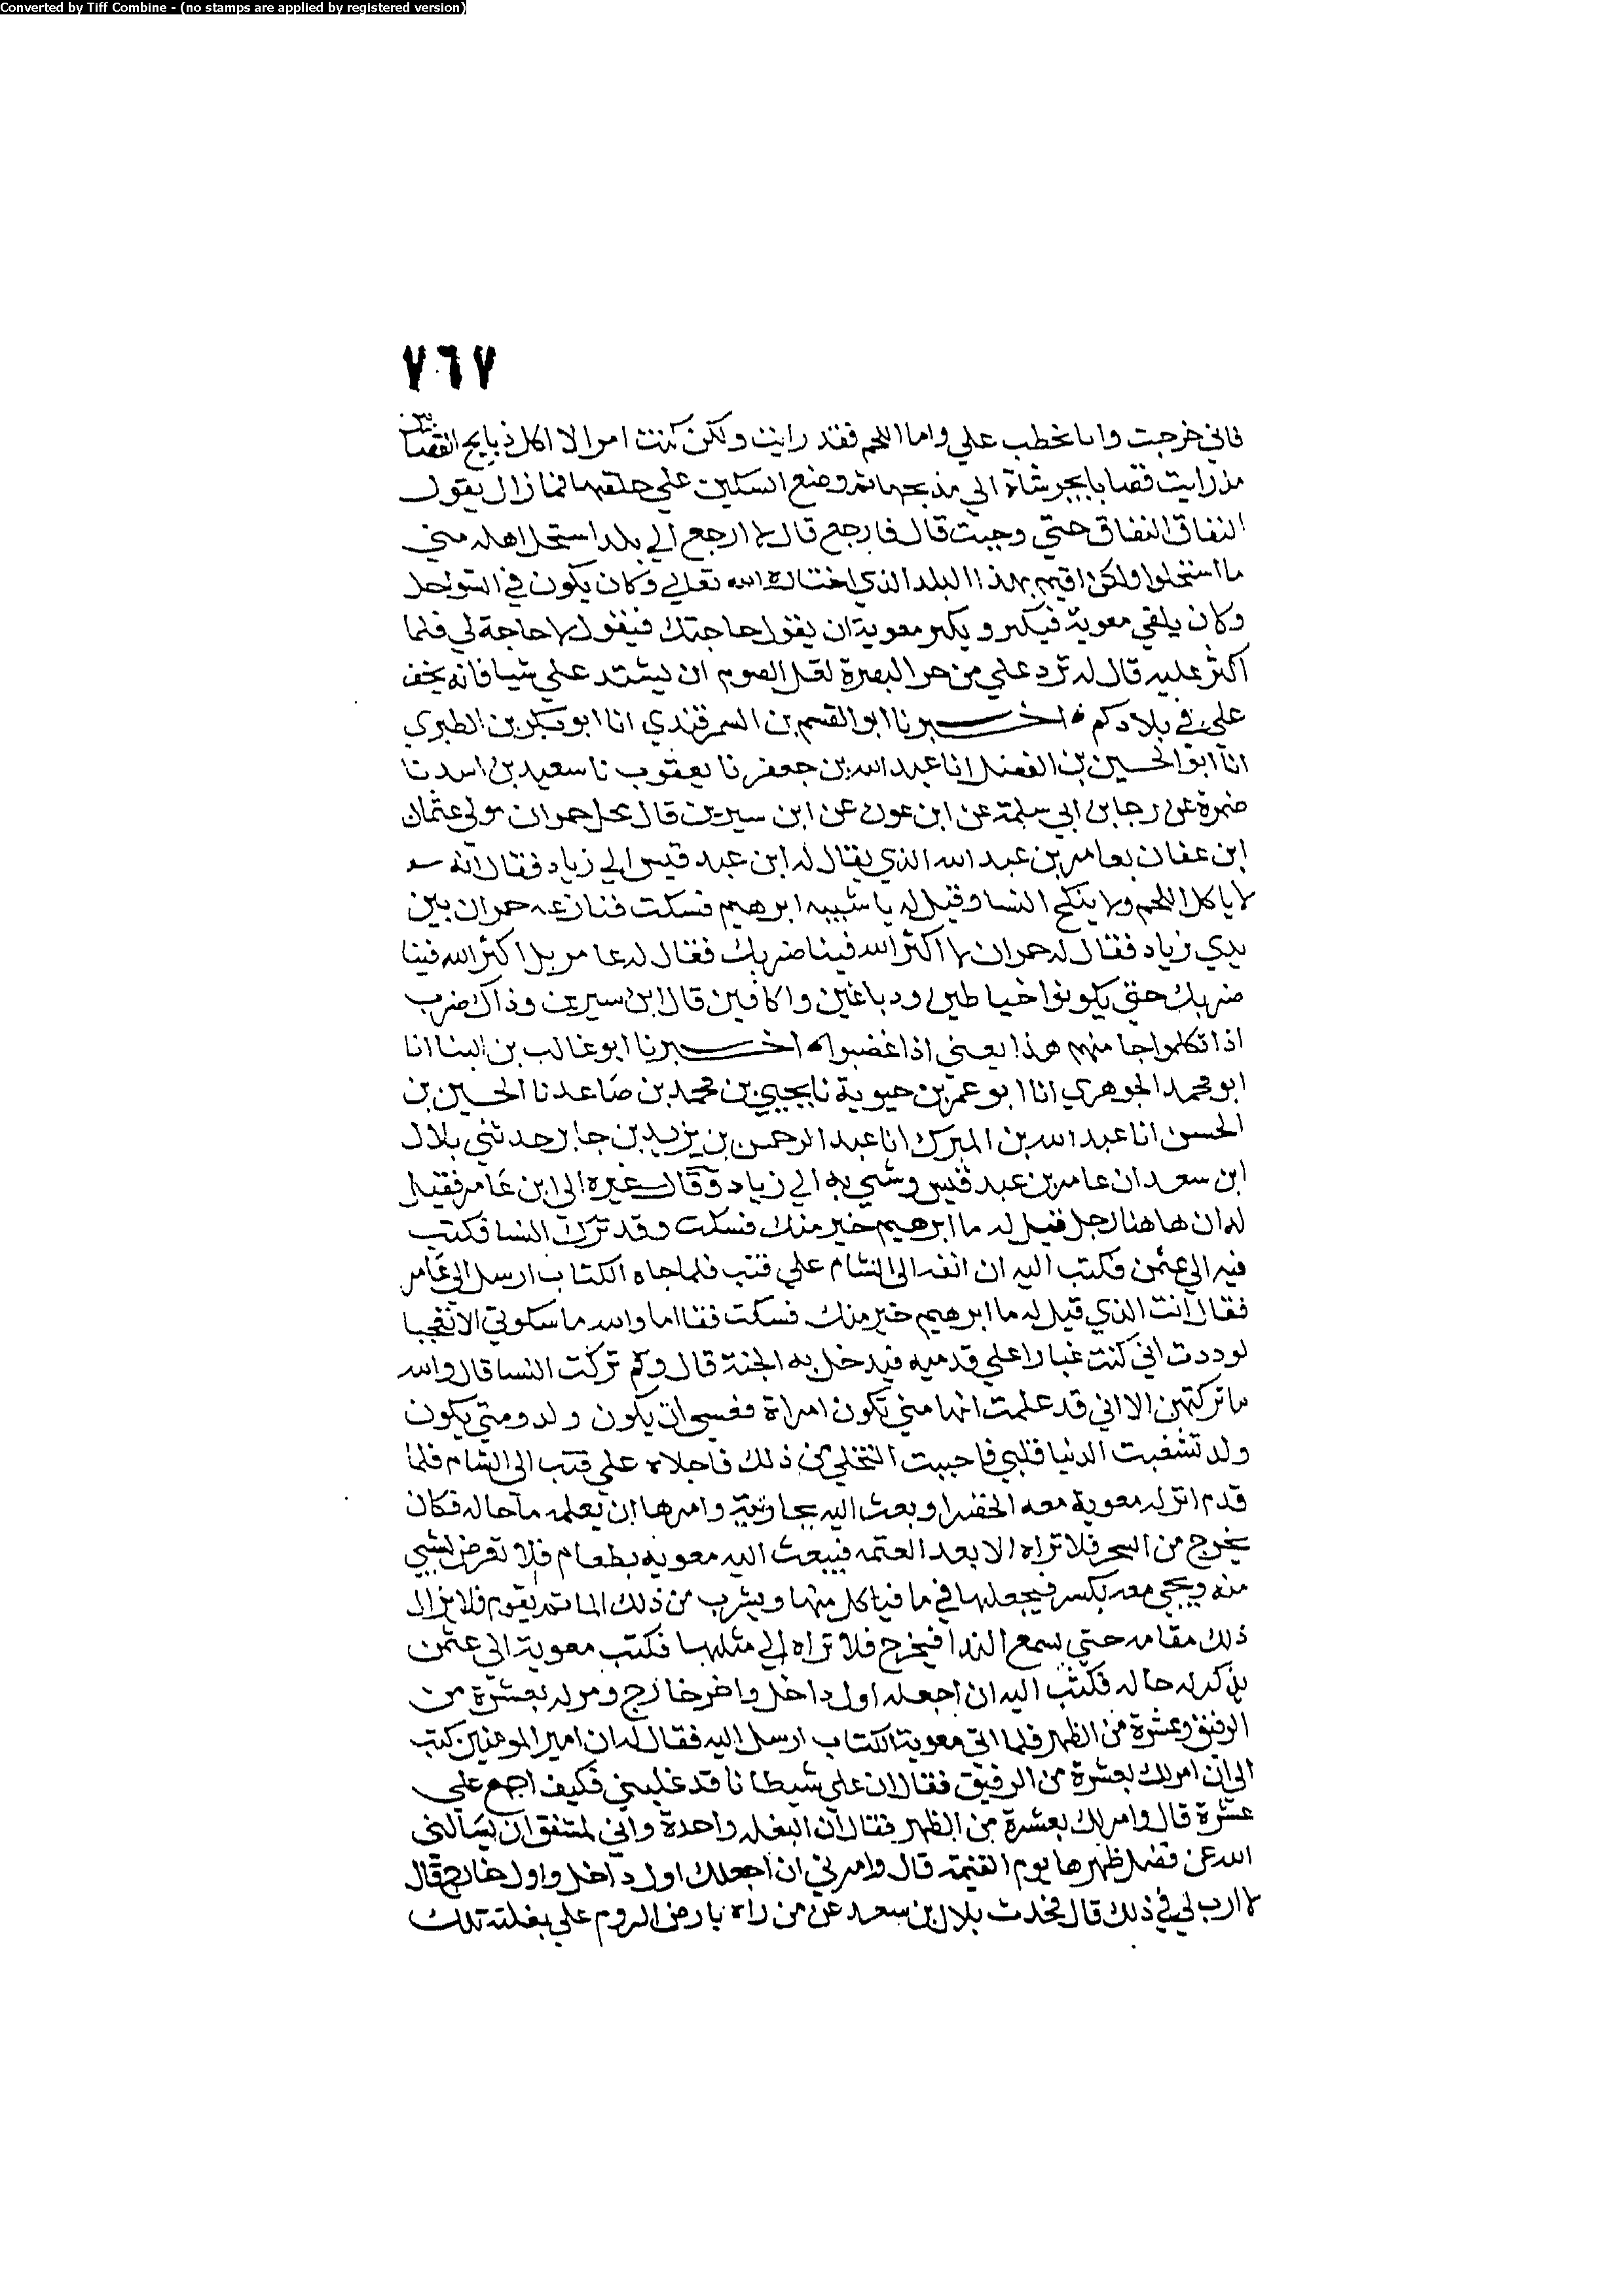 Converted by Tiff Combine - (no stamps are applied by registered version)
٧٦٧
فاني خرجت وانا يخطب علي واما اللحم فقد رايت ولكن كنت امرا لا اكل ذبايح القصابين
مذ رايت قصابا يجر شاة الي مذبحها ثم وضع السكين علي حلقها فما زال يقول
النفاق النفاق حتي وجبت قال فارجع قال لا ارجع الي بلد استحل اهله مني
ما استحلوا ولكن اقيم بهذا البلد الذي اختاره الله تعالي وكان يكون في السواحل
وكان يلقي معوية فيكثر ويكثر معوية ان يقول حاجتك فيقول لا حاجة لي فلما
اكثر عليه قال له ترد علي من حر البصرة لعل الصوم ان يشتد علي شيا فانه يخف
علي في بلادكم اخبرنا ابو القسم بن السمرقندي انا ابو بكر بن الطبري
انا ابو الحسين بن الفضل انا عبد الله بن جعفر نا يعقوب نا سعيد بن اسد نا
ضمرة عن رجا بن ابي سلمة عن ابن عون عن ابن سيرين قال محل حمران مولي عثمان
ابن عفان بعامر بن عبد الله الذي يقال له ابن عبد قيس الي زياد فقال انه
لا ياكل اللحم ولا ينكح النسا وقيل له يا شبيه ابرهيم فسكت فنازعه حمران بين
يدي زياد فقال له حمران لا اكثر الله فينا ضربك فقال له عامر بل اكثر الله فينا
ضربك حتي يكونوا خياطين ودباغين واكافين قال ابن سيرين وذاك ضرب
اذا تكلموا جا منهم هذا يعني اذا غضبوا اخبرنا ابو غالب بن البنا انا
ابو محمد الجوهري انا ابو عمر بن حيوية نا يحيي بن محمد بن صاعد نا الحسين بن
الحسن انا عبد الله بن المبرك انا عبد الرحمن بن يزيد بن جابر حدثني بلال
ابن سعد ان عامر بن عبد قيس وشي به الي زياد وقال غيره الي ابن عامر فقيل
له ان هاهنا رجل قيل له ما ابرهيم خير منك فسكت وقد ترك النسا فكتب
فيه الي عثمن فكتب اليه ان انفه الي الشام علي قتب فلما جاه الكتاب ارسل الي عامر
فقال انت الذي قيل له ما ابرهيم خير منك فسكت فقا اما والله ما سكوتي الا تعجبا
لوددت اني كنت غبارا علي قدميه فيدخل به الجنة قال ولم تركت النسا قال والله
ما تركتهن الا اني قد علمت انها متي تكون امراة فعسي ان يكون ولد ومتي يكون
ولد تشعبت الدنيا قلبي فاحببت التخلي من ذلك فاجلاه علي قتب الي الشام فلما
قدم انزله معوية معه الخضرا وبعث اليه بجارية وامرها ان تعلمه ما حاله فكان
يخرج من السحر فلا تراه الا بعد العتمه فيبعث اليه معوية بطعام فلا تعرض لشي
منه ويجي معه بكسر فيجعلها في ما فياكل منها ويشرب من ذلك الما ثم يقوم فلا يزال
ذلك مقامه حتي يسمع الندا فيخرج فلا تراه الي مثلها فكتب معوية الي عثمن
يذكر له حاله فكتب اليه ان اجعله اول داخل واخر خارج ومر له بعشرة من
الرقيق وعشرة من الظهر فلما اتي معوية الكتاب ارسل اليه فقال له ان امير المومنين كتب
الي ان امر لك بعشرة من الرقيق فقال ان علي شيطانا قد غلبني فكيف اجمع علي
عشرة قال وامر لك بعشرة من الظهر فقال ان لبغله واحدة واني لمشفق ان يسالني
الله عن فضل ظهرها يوم القيمة قال وامرني ان اجعلك اول داخل واول خارج قال
لا ارب لي في ذلك قال فحدث بلال بن سعد عن من راه بارض الروم علي بغلته تلك